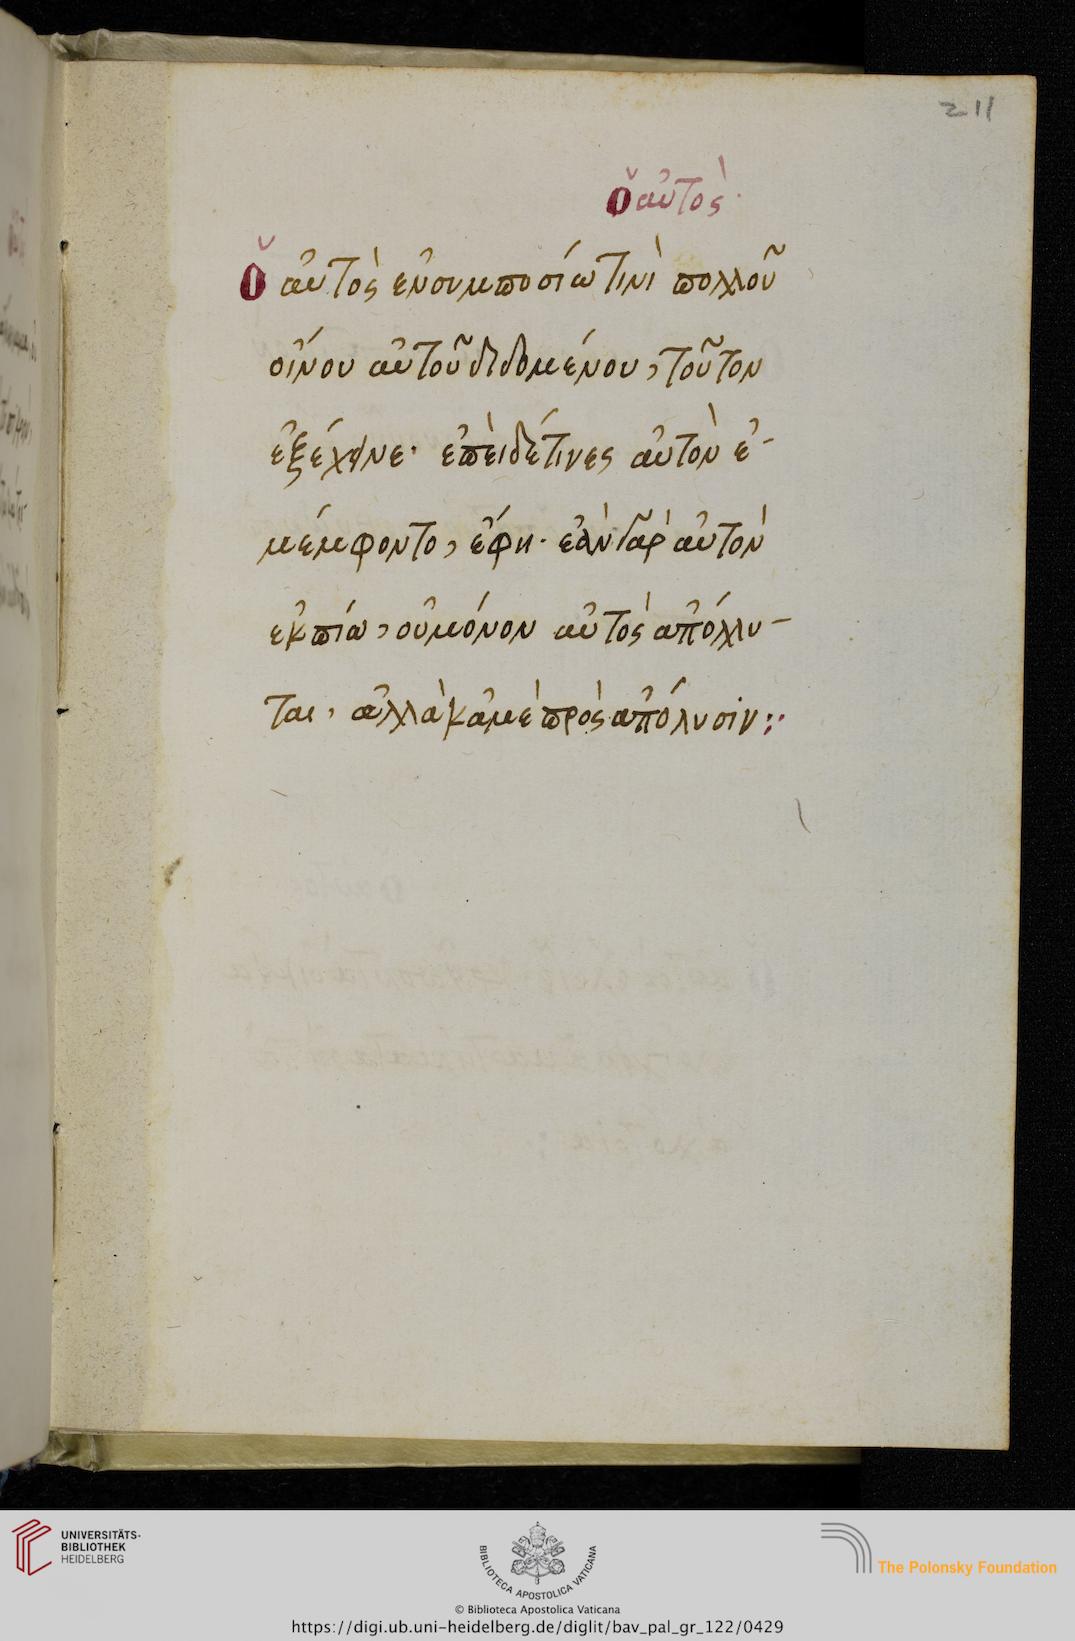 211
Ὁ αὐτὸς·
Ὁ αὐτὸς ἐνσυμποσίω τινὶ πολλοῦ
οἴνου αὐτοῦ διδομένου, τοῦτον
ἐξέχυνε· ἐπεὶ δέ τινες αὐτὸν ἐ-
μέμφοντο, ἔφη· ἐὰν γὰρ αὐτὸν
ἐκπίω, οὐ μόνον αὐτὸς ἀπόλλυ-
ται, ἀλλὰ κἀμὲ πρὸς ἀπόλυσιν::
UNIVERSITÄTS-
BIBLIOTHEK
HEIDELBERG
BIBLIOTECA APOSTOLICA VATICANA
The Polonsky Foundation
© Biblioteca Apostolica Vaticana
https://digi.ub.uni-heidelberg.de/diglit/bav_pal_gr_122/0429